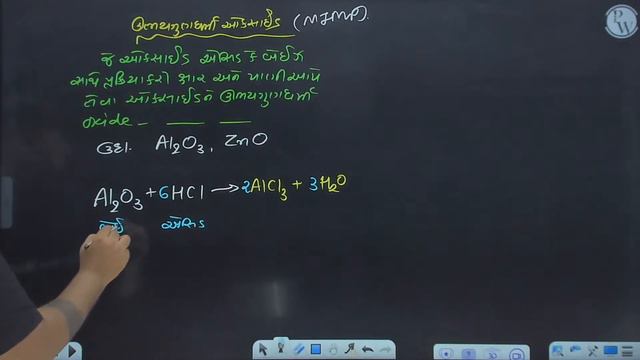 ઉભયગુણધર્મી ઑક્સાઈડ (MIMP).
જે ઑક્સાઈડ ઍસિડ કે બેઈઝ
સાથે પ્રક્રિયા કરી ક્ષાર અને પાણી આપે
તેવા ઑક્સાઈડને ઊભયગુણધર્મી
ઉદા. Al₂O₃, ZnO
Al₂O₃ + 6HCl → 2AlCl₃ + 3H₂O
બેઈઝ ઍસિડ
PW